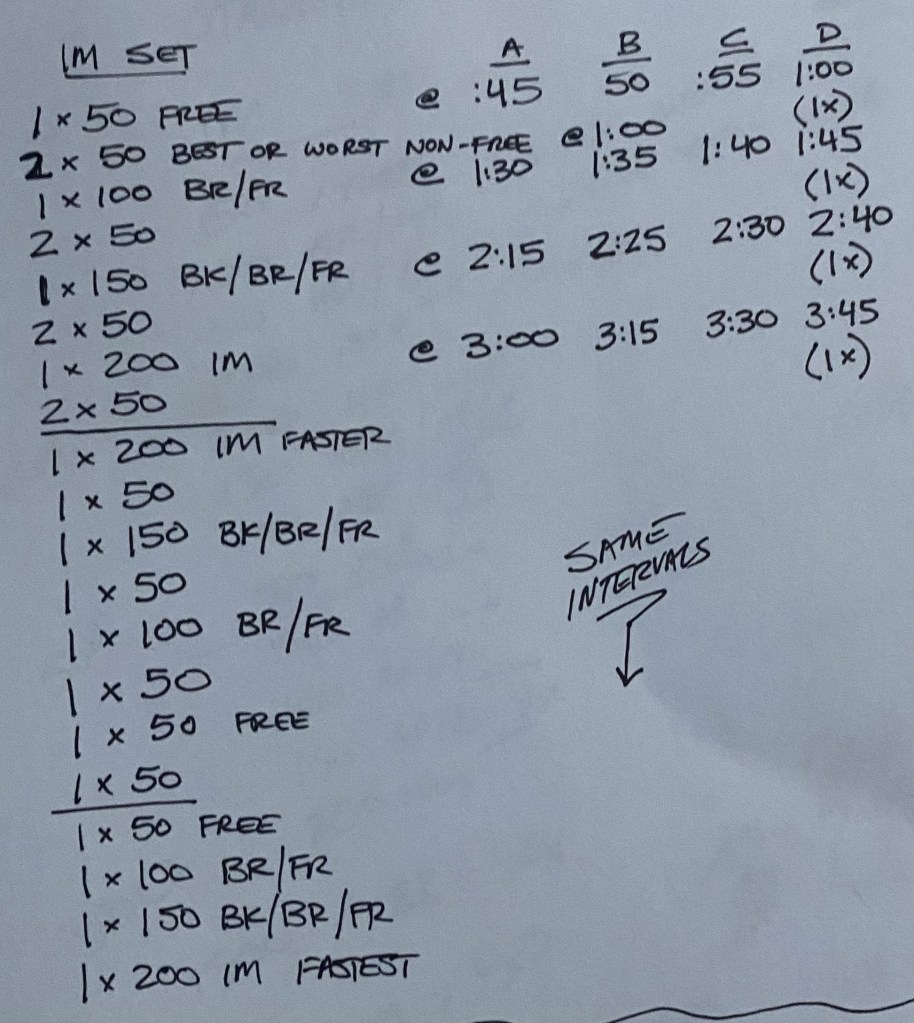 IM SET A B C D
1 x 50 FREE @ :45 50 :55 1:00
(1x)
2 x 50 BEST OR WORST NON-FREE @ 1:00
1 x 100 BR/FR @ 1:30 1:35 1:40 1:45
(1x)
2 x 50
1 x 150 BK/BR/FR @ 2:15 2:25 2:30 2:40
(1x)
2 x 50
1 x 200 IM @ 3:00 3:15 3:30 3:45
(1x)
2 x 50
1 x 200 IM FASTER
1 x 50
1 x 150 BK/BR/FR
1 x 50
1 x 100 BR/FR
1 x 50
1 x 50 FREE
1 x 50
SAME
INTERVALS
1 x 50 FREE
1 x 100 BR/FR
1 x 150 BK/BR/FR
1 x 200 IM FASTEST